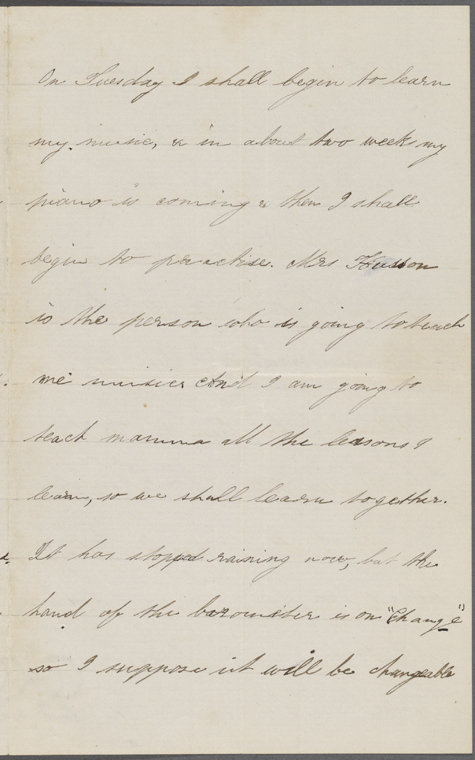 On Tuesday I shall begin to learn
my music, & in about two weeks my
piano is coming & then I shall
begin to practise. Mrs
is the person who is going to teach
me music and I am going to
teach mamma all the leasons I
learn, so we shall learn together.
It has stopped raining now, but the
hand of the barometer is on "Change"
so I suppose it will be changeable